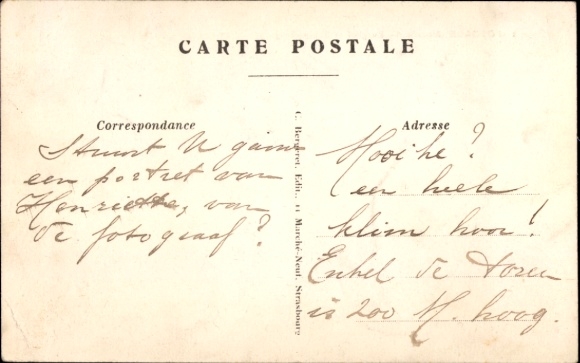 CARTE POSTALE
Correspondance
Stuurt U gauw
een portret van
Henriette, van
de fotograaf?
C. Bergeret, Edit., 11 Marché-Neuf, Strasbourg
Adresse
Mooi he?
een heele
klim hoor!
Enkel de toren
is 200 M. hoog.